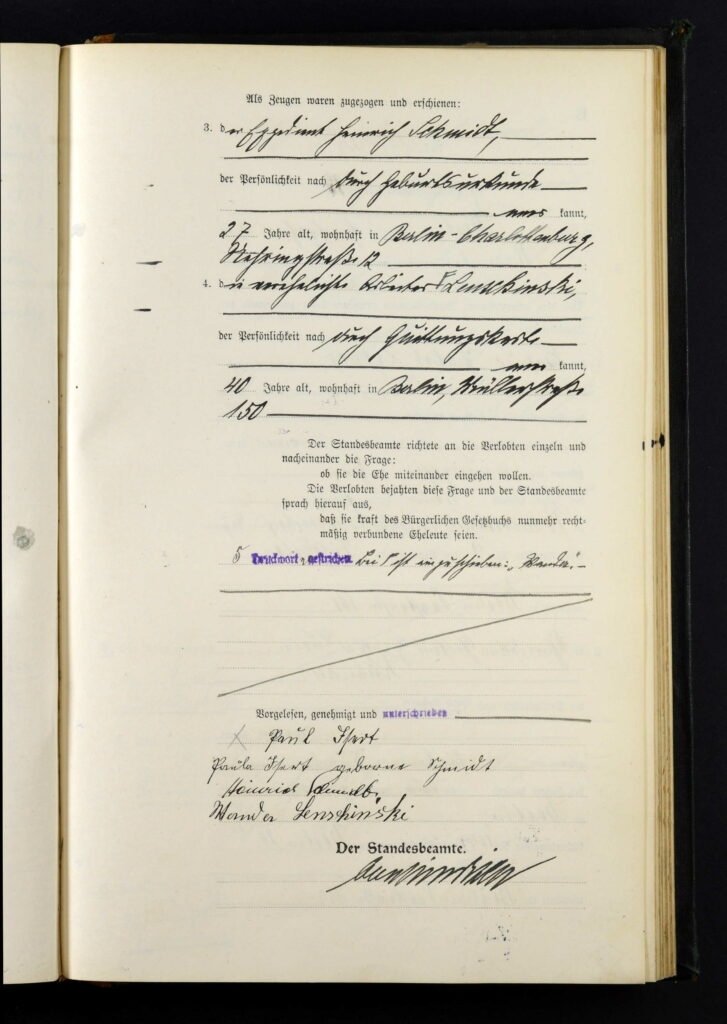 Als Zeugen waren zugezogen und erschienen:
3. der Expedient Heinrich Schmidt,
der Persönlichkeit nach durch Geburtsurkunde
aner kannt,
27 Jahre alt, wohnhaft in Berlin-Charlottenburg,
Nehringstraße 12
4. die verehelichte Arbeiter Γ Lenschinski,
der Persönlichkeit nach durch Quittungskarte
aner kannt,
40 Jahre alt, wohnhaft in Berlin, Müllerstraße
150
Der Standesbeamte richtete an die Verlobten einzeln und
nacheinander die Frage:
ob sie die Ehe miteinander eingehen wollen.
Die Verlobten bejahten diese Frage und der Standesbeamte
sprach hierauf aus,
daß sie kraft des Bürgerlichen Gesetzbuchs nunmehr recht-
mäßig verbundene Eheleute seien.
5 Druckwort gestrichen. Bei Γ ist einzuschieben: „Wanda“.
Vorgelesen, genehmigt und unterschrieben
Paul Isert
Paula Isert geborne Schmidt
Heinrich Schmidt
Wanda Lenschinski
Der Standesbeamte.